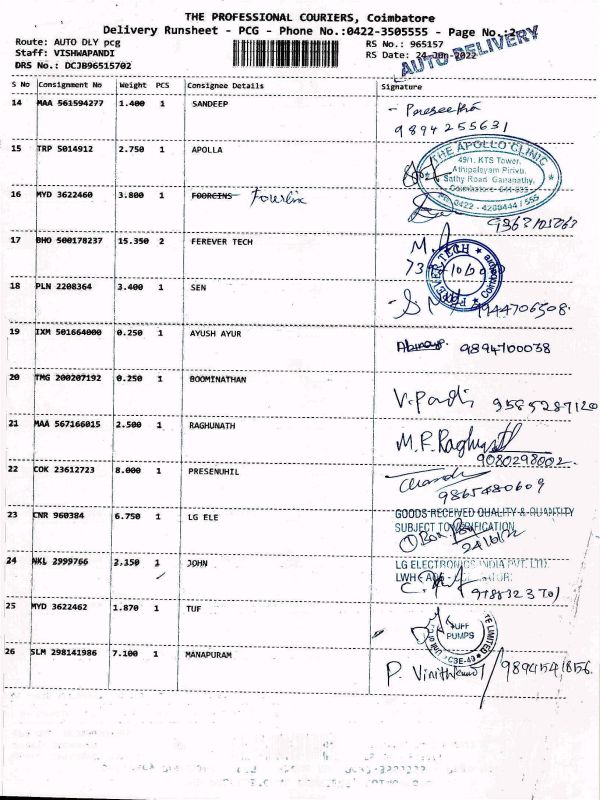 THE PROFESSIONAL COURIERS, Coimbatore
Delivery Runsheet - PCG - Phone No.:0422-3505555 - Page No.:2
Route: AUTO DLY pcg
Staff: VISHWAPANDI
DRS No.: DCJB96515702
RS No.: 965157
RS Date: 24-Jun-2022
AUTO DELIVERY
S No Consignment No Weight PCS Consignee Details Signature
14 MAA 561594277 1.400 1 SANDEEP
9894255631
15 TRP 5014912 2.750 1 APOLLA
THE APOLLO CLINIC
49/1, KTS Tower,
Athipalayam Pirivu,
Sathy Road, Ganapathy,
Coimbatore
0422 - 4200444 / 555
16 MYD 3622460 3.800 1 FOORCINS Fourlin
17 BHO 500178237 15.350 2 FEREVER TECH
18 PLN 2208364 3.400 1 SEN
9944706508
19 IXM 501664000 0.250 1 AYUSH AYUR
9894700038
20 TMG 200207192 0.250 1 BOOMINATHAN
V. Pandi 9585287120
21 MAA 567166015 2.500 1 RAGHUNATH
M.R. Raghunath
9080298002
22 COK 23612723 8.000 1 PRESENUHIL
9865480609
23 CNR 960384 6.750 1 LG ELE
GOODS RECEIVED QUALITY & QUANTITY
SUBJECT TO VERIFICATION
① Box
24/6/22
LG ELECTRONICS INDIA PVT. LTD.
24 NKL 2999766 2.150 1 JOHN
25 MYD 3622462 1.870 1 TUF
PUMPS
26 SLM 298141986 7.100 1 MANAPURAM
P. Vinith 9894541856